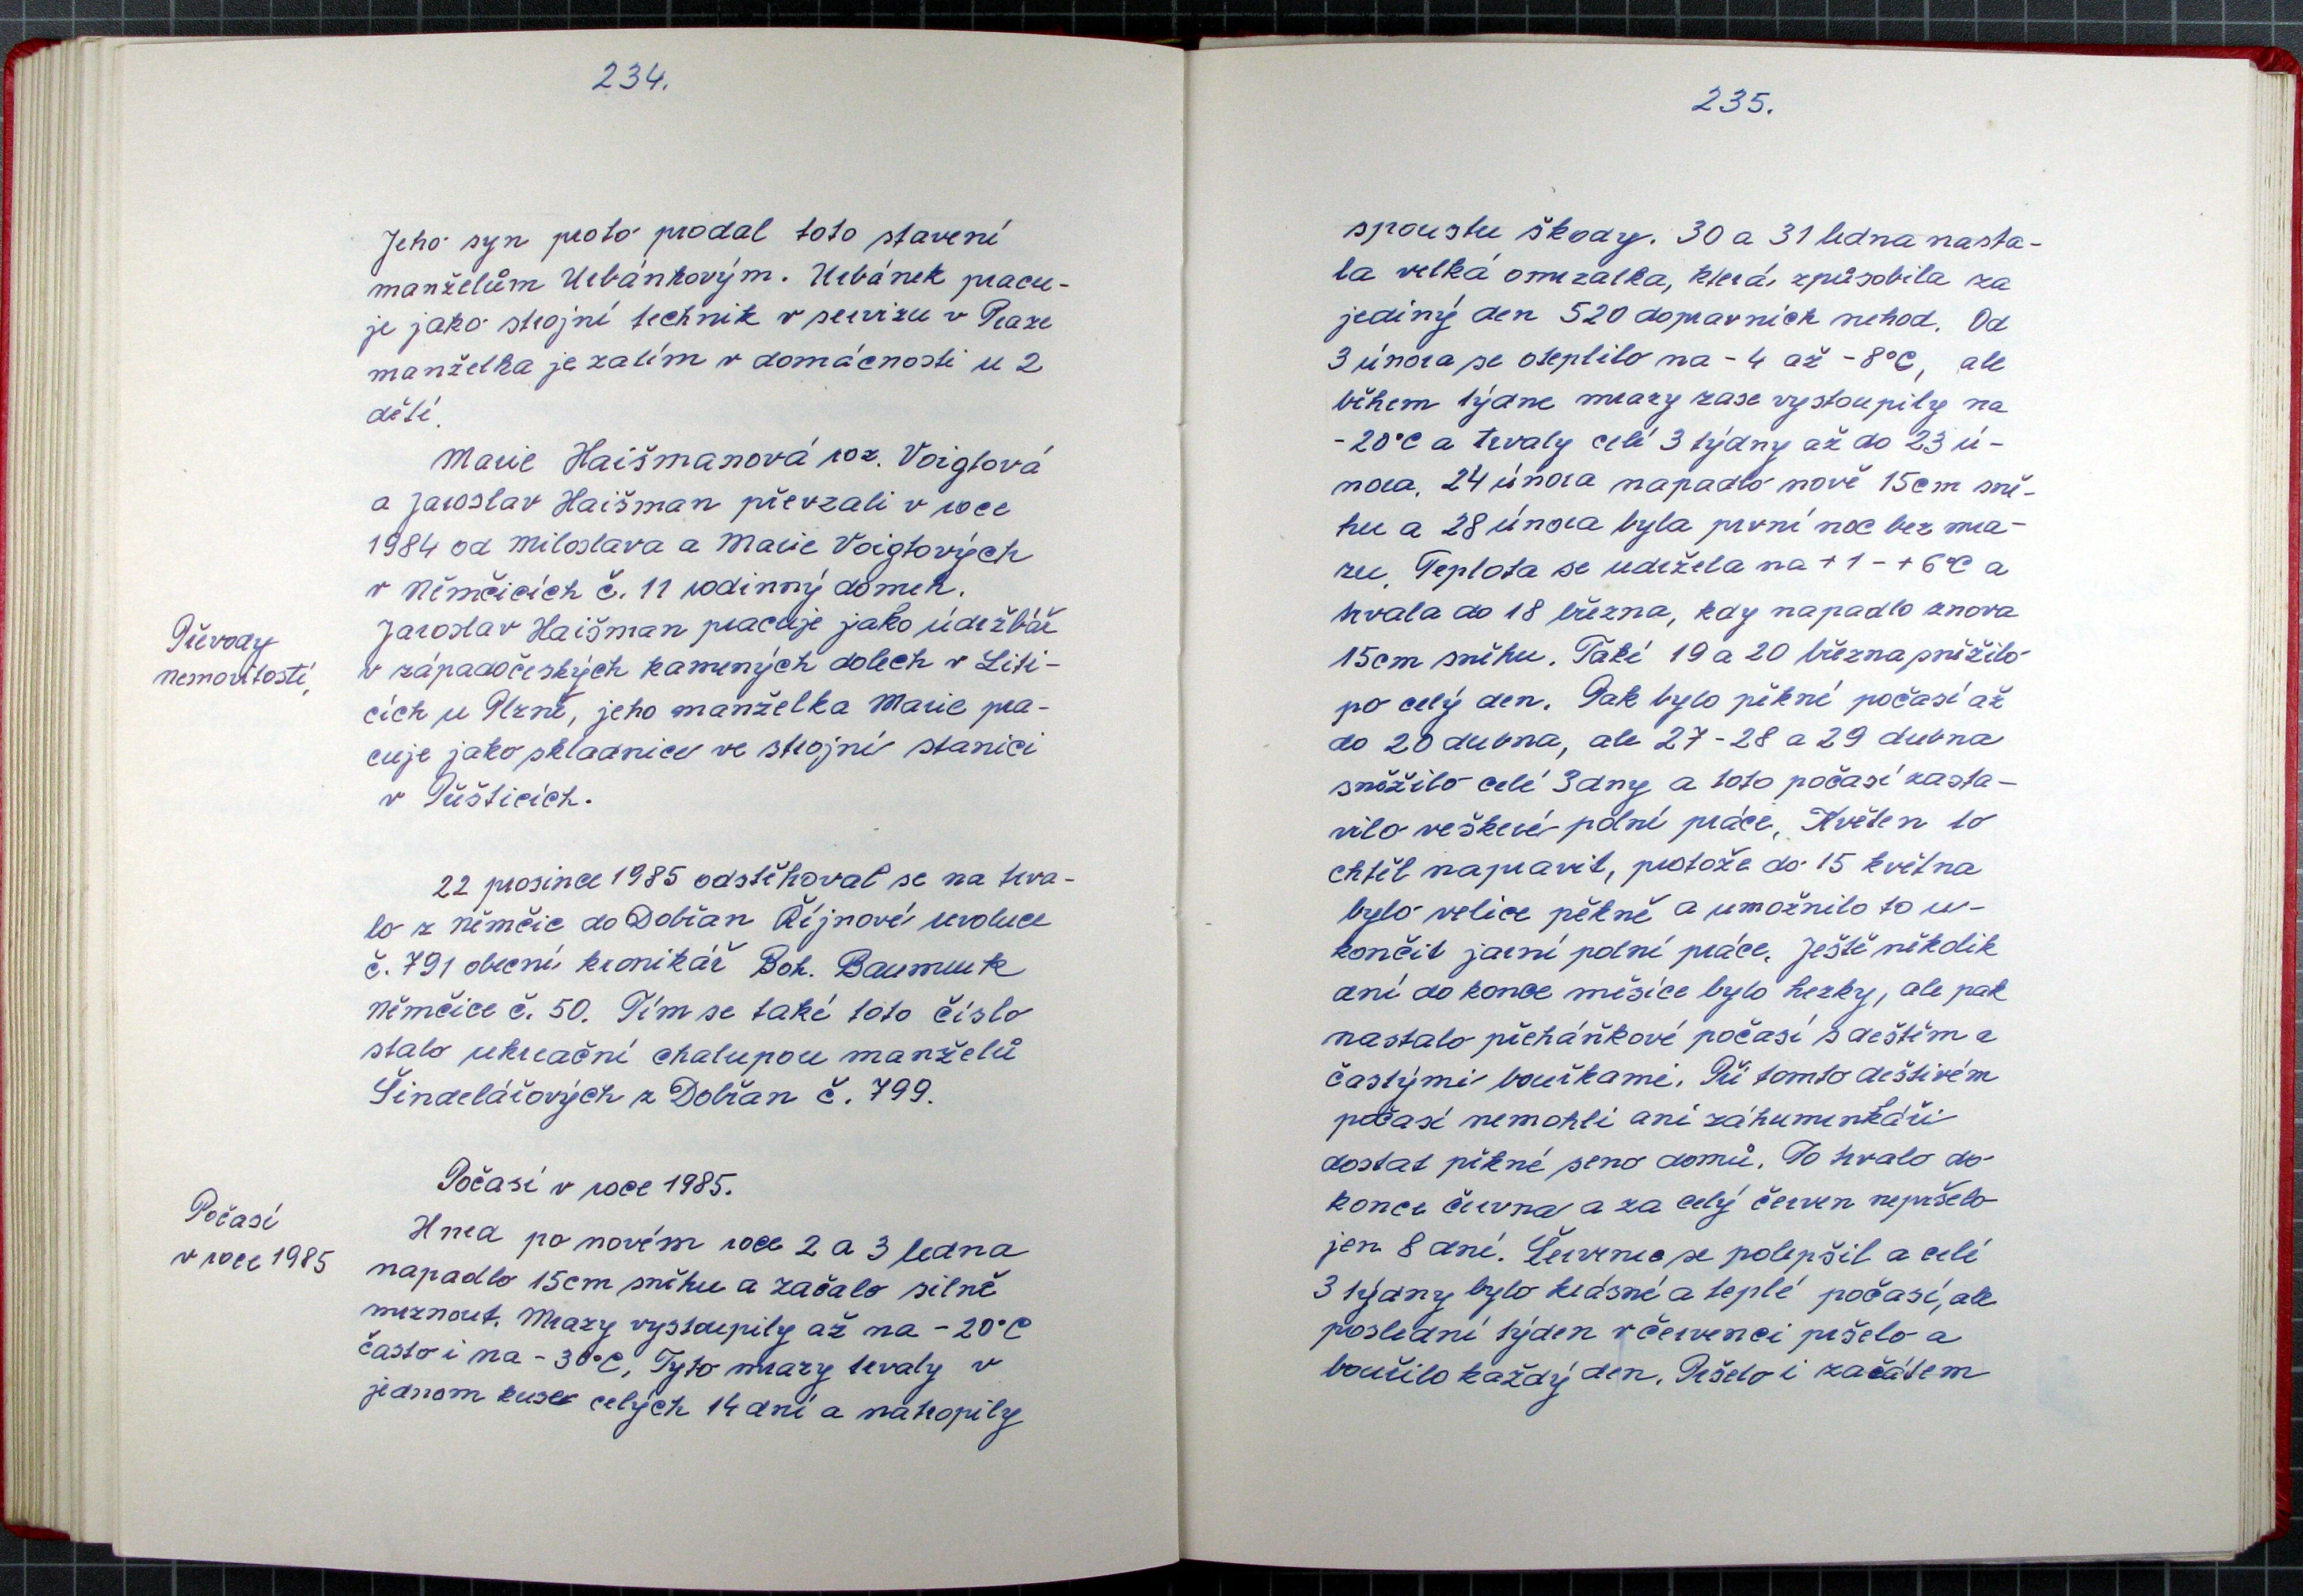 234.
Jeho syn proto prodal toto stavení
manželům Urbánkovým. Urbánek pracu-
je jako strojní technik v servizu v Praze
manželka je zatím v domácnosti u 2
dětí.
Marie Haišmanová roz. Voigtová
a Jaroslav Haišman převzali v roce
1984 od Miloslava a Marie Voigtových
v Němčicích č. 11 rodinný domek.
Převody
nemovitostí,
Jaroslav Haišman pracuje jako údržbář
v západočeských kamených dolech v Liti-
cích u Plzně, jeho manželka Marie pra-
cuje jako skladnice ve strojní stanici
v Přešticích.
22 prosince 1985 odstěhoval se na trva-
lo z Němčic do Dobřan Říjnové revoluce
č. 791 obecní kronikář Boh. Baumruk
Němčice č. 50. Tím se také toto číslo
stalo rekreační chalupou manželů
Šindelářových z Dobřan č. 799.
Počasí v roce 1985.
Počasí
v roce 1985
Hned po novém roce 2 a 3 ledna
napadlo 15cm sněhu a začalo silně
mrznout. Mrazy vystoupily až na -20°C
často i na -30°C, Tyto mrazy trvaly v
jednom kuse celých 14 dní a natropily
235.
spoustu škody. 30 a 31 ledna nasta-
la velká omrzalka, která způsobila za
jediný den 520 dopravních nehod. Od
3 února se oteplilo na -4 až -8°C, ale
během týdne mrazy zase vystoupily na
-20°C a trvaly celé 3 týdny až do 23 ú-
nora. 24 února napadlo nově 15cm sně-
hu a 28 února byla první noc bez mra-
zu. Teplota se udržela na +1 - +6°C a
trvala do 18 března, kdy napadlo znova
15cm sněhu. Také 19 a 20 března sněžilo
po celý den. Pak bylo pěkné počasí až
do 20 dubna, ale 27-28 a 29 dubna
sněžilo celé 3dny a toto počasí zasta-
vilo veškeré polní práce, Květen to
chtěl napravit, protože do 15 května
bylo velice pěkně a umožnilo to u-
končit jarní polní práce. Ještě několik
dní do konce měsíce bylo hezky, ale pak
nastalo přeháňkové počasí s deštěm a
častými bouřkami. Při tomto deštivém
počasí nemohli ani záhumenkáři
dostat pěkné seno domů. To trvalo do
konce června a za celý červen nepršelo
jen 8 dní. Červenec se polepšil a celé
3 týdny bylo krásné a teplé počasí, ale
poslední týden v červenci pršelo a
bouřilo každý den. Pršelo i začátem